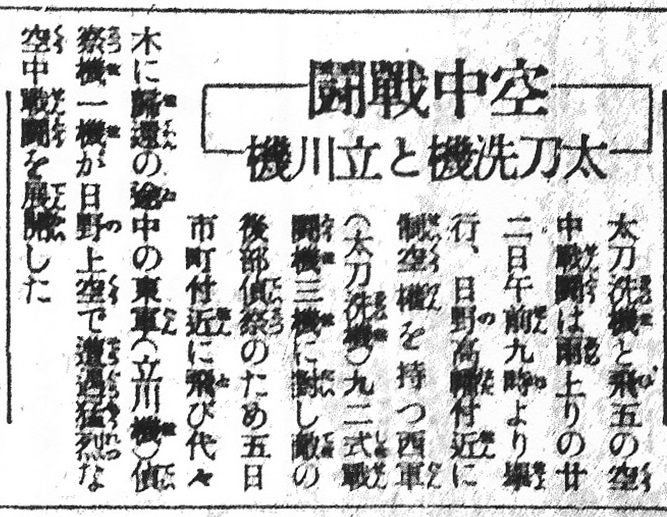 空中戰鬪
太刀洗機と立川機
太刀洗機と飛五の空
中戰鬪は雨上りの廿
二日午前九時より擧
行、日野高幡付近に
制空權を持つ西軍
(太刀洗機)九二式戰
鬪機三機に對し敵の
後部偵察のため五日
市町付近に飛び代々
木に歸還の途中の東軍(立川機)偵
察機一機が日野上空で遭遇猛烈な
空中戰鬪を展開した